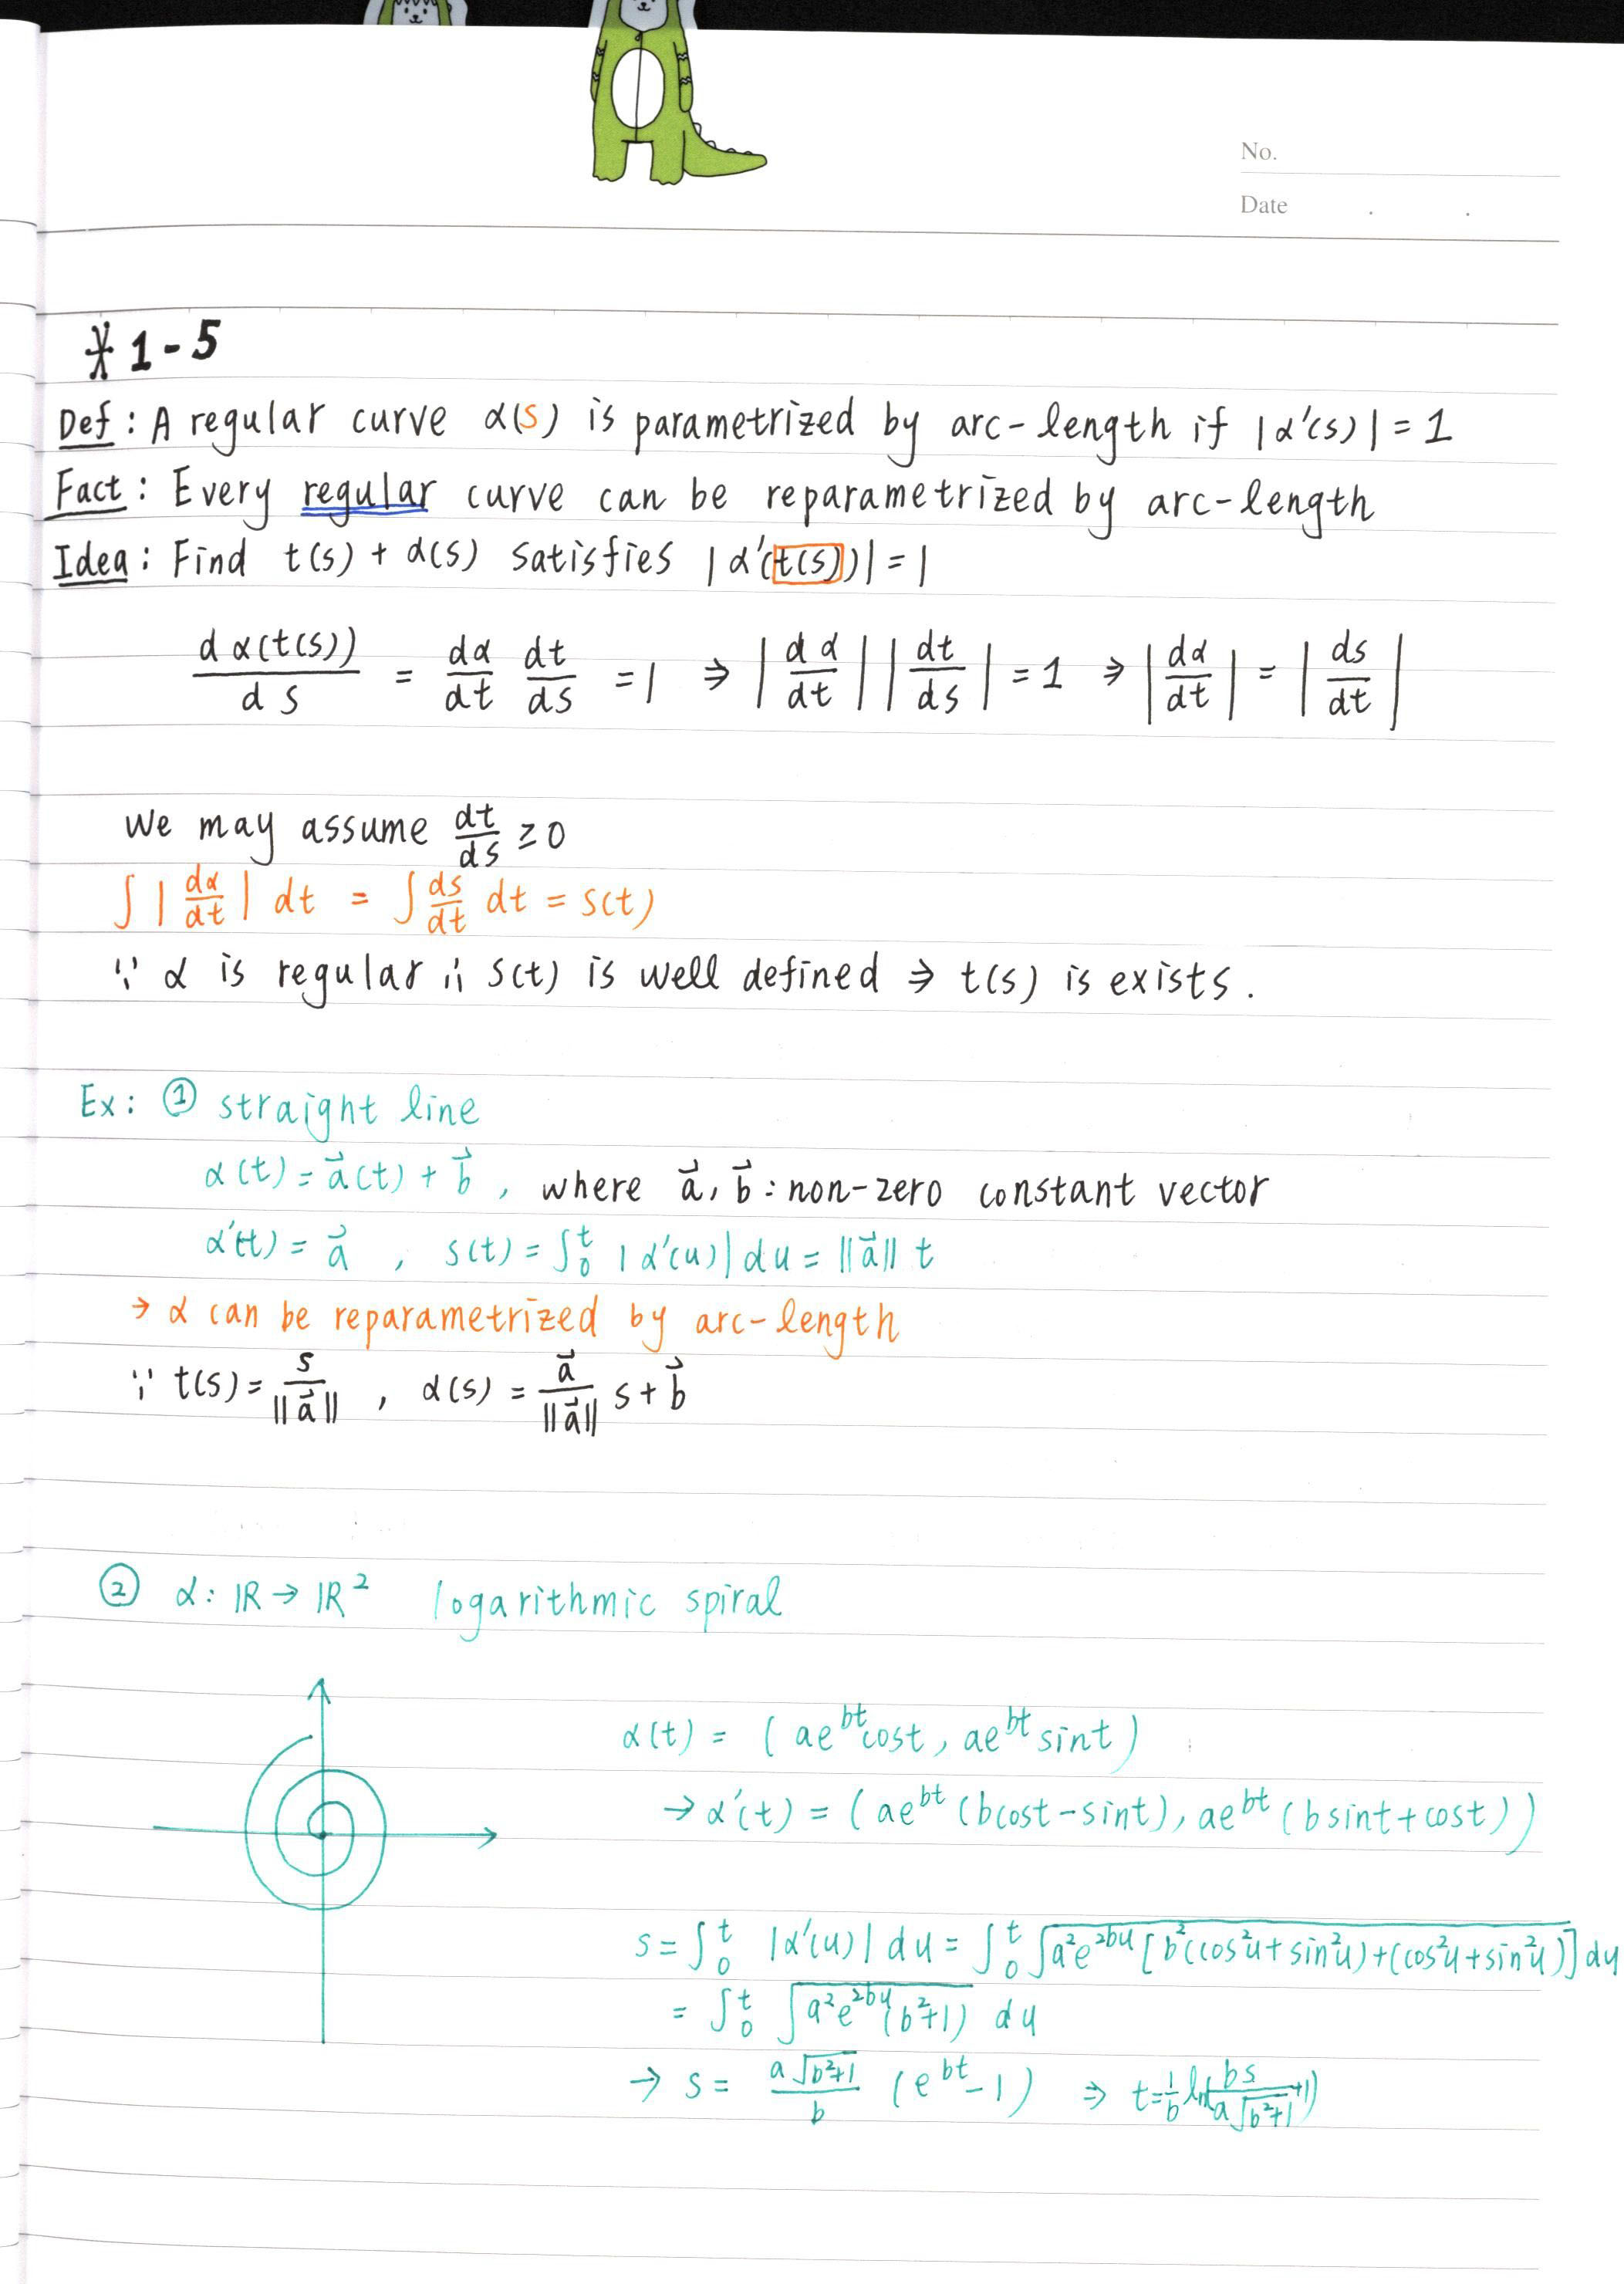 No.
Date . .
※ 1-5
Def: A regular curve α(s) is parametrized by arc-length if |α'(s)| = 1
Fact: Every regular curve can be reparametrized by arc-length
Idea: Find t(s) + α(s) satisfies |α'(t(s))| = 1
dα(t(s))/ds = dα/dt dt/ds = 1 ⇒ |dα/dt| |dt/ds| = 1 ⇒ |dα/dt| = |ds/dt|
We may assume dt/ds ≥ 0
∫ |dα/dt| dt = ∫ ds/dt dt = s(t)
∵ α is regular ∴ s(t) is well defined ⇒ t(s) is exists.
Ex: ① straight line
α(t) = a⃗(t) + b⃗, where a⃗, b⃗: non-zero constant vector
α'(t) = a⃗, s(t) = ∫₀ᵗ |α'(u)| du = ||a⃗|| t
→ α can be reparametrized by arc-length
∵ t(s) = s/||a⃗||, α(s) = a⃗/||a⃗|| s + b⃗
② α: ℝ → ℝ² logarithmic spiral
α(t) = (ae^{bt}cost, ae^{bt}sint)
→ α'(t) = (ae^{bt}(bcost-sint), ae^{bt}(bsint+cost))
s = ∫₀ᵗ |α'(u)| du = ∫₀ᵗ √(a²e^{2bu}[b²(cos²u+sin²u)+(cos²u+sin²u)]) du
= ∫₀ᵗ √(a²e^{2bu}(b²+1)) du
→ s = a√(b²+1)/b (e^{bt}-1) ⇒ t = 1/b ln(bs/(a√(b²+1))+1)